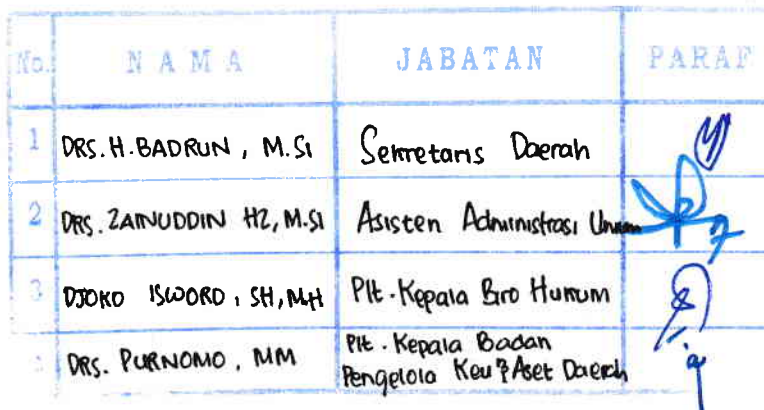 No. N A M A JABATAN PARAF
1 DRS. H. BADRUN, M.Si Sekretaris Daerah
2 DRS. ZAINUDDIN HZ, M.Si Asisten Administrasi Umum
3 DJOKO ISWORO, SH, MH Plt. Kepala Biro Hukum
DRS. PURNOMO, MM Plt. Kepala Badan
Pengelola Keu & Aset Daerah